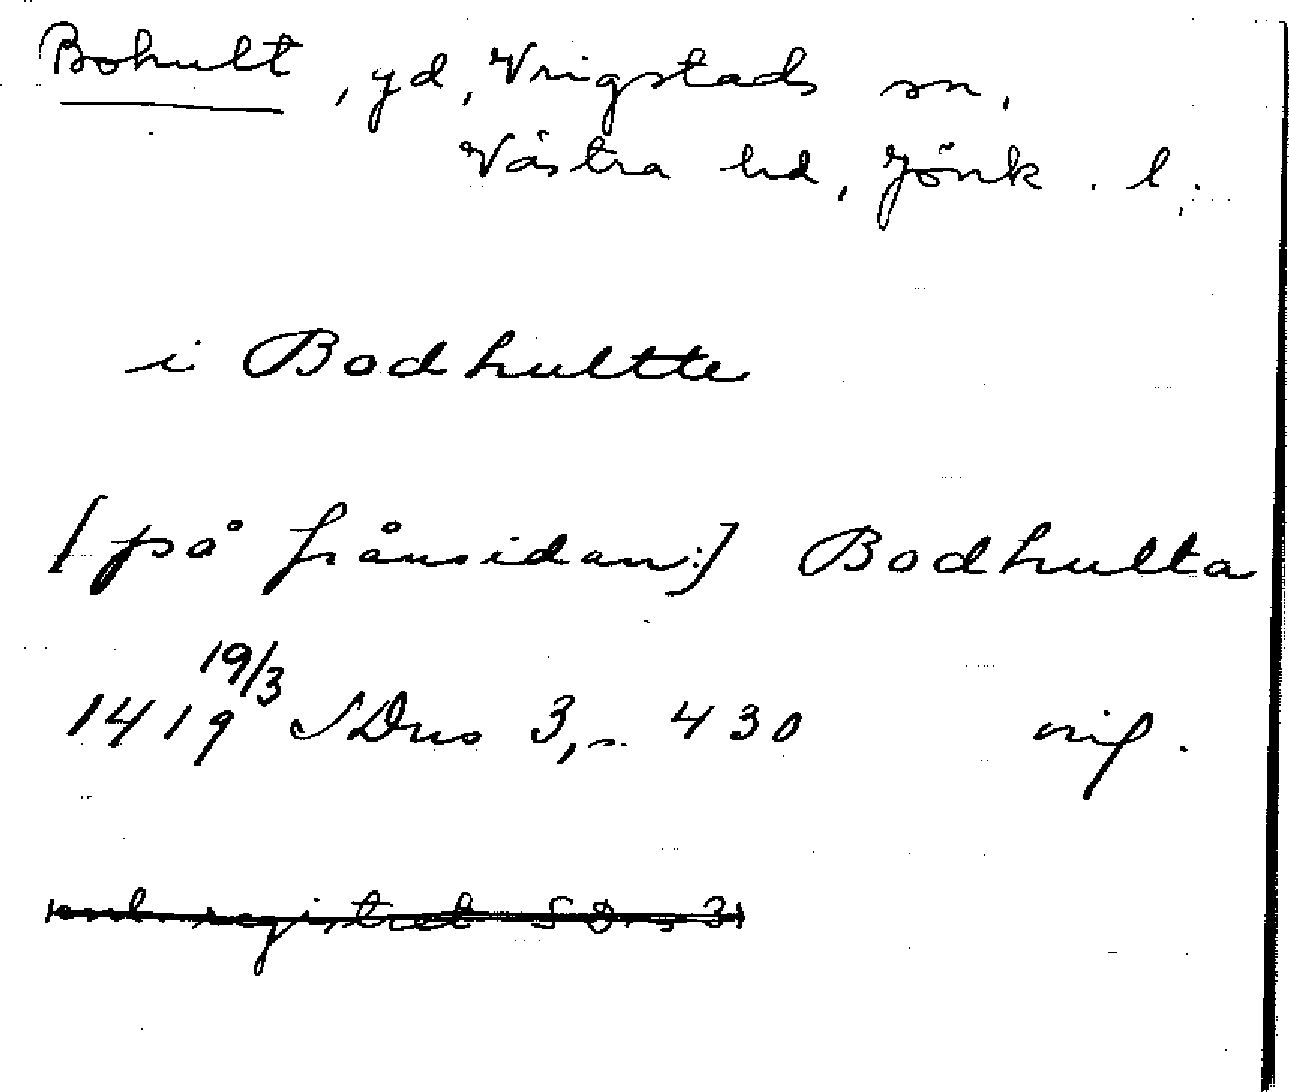 Bohult, gd, Vrigstads sn,
Västra hd, Jönk. l.
i Bodhultte
[på frånsidan:] Bodhulta
1419 19/3 SDns 3, s. 430 orig.
enl. registret SDns 3